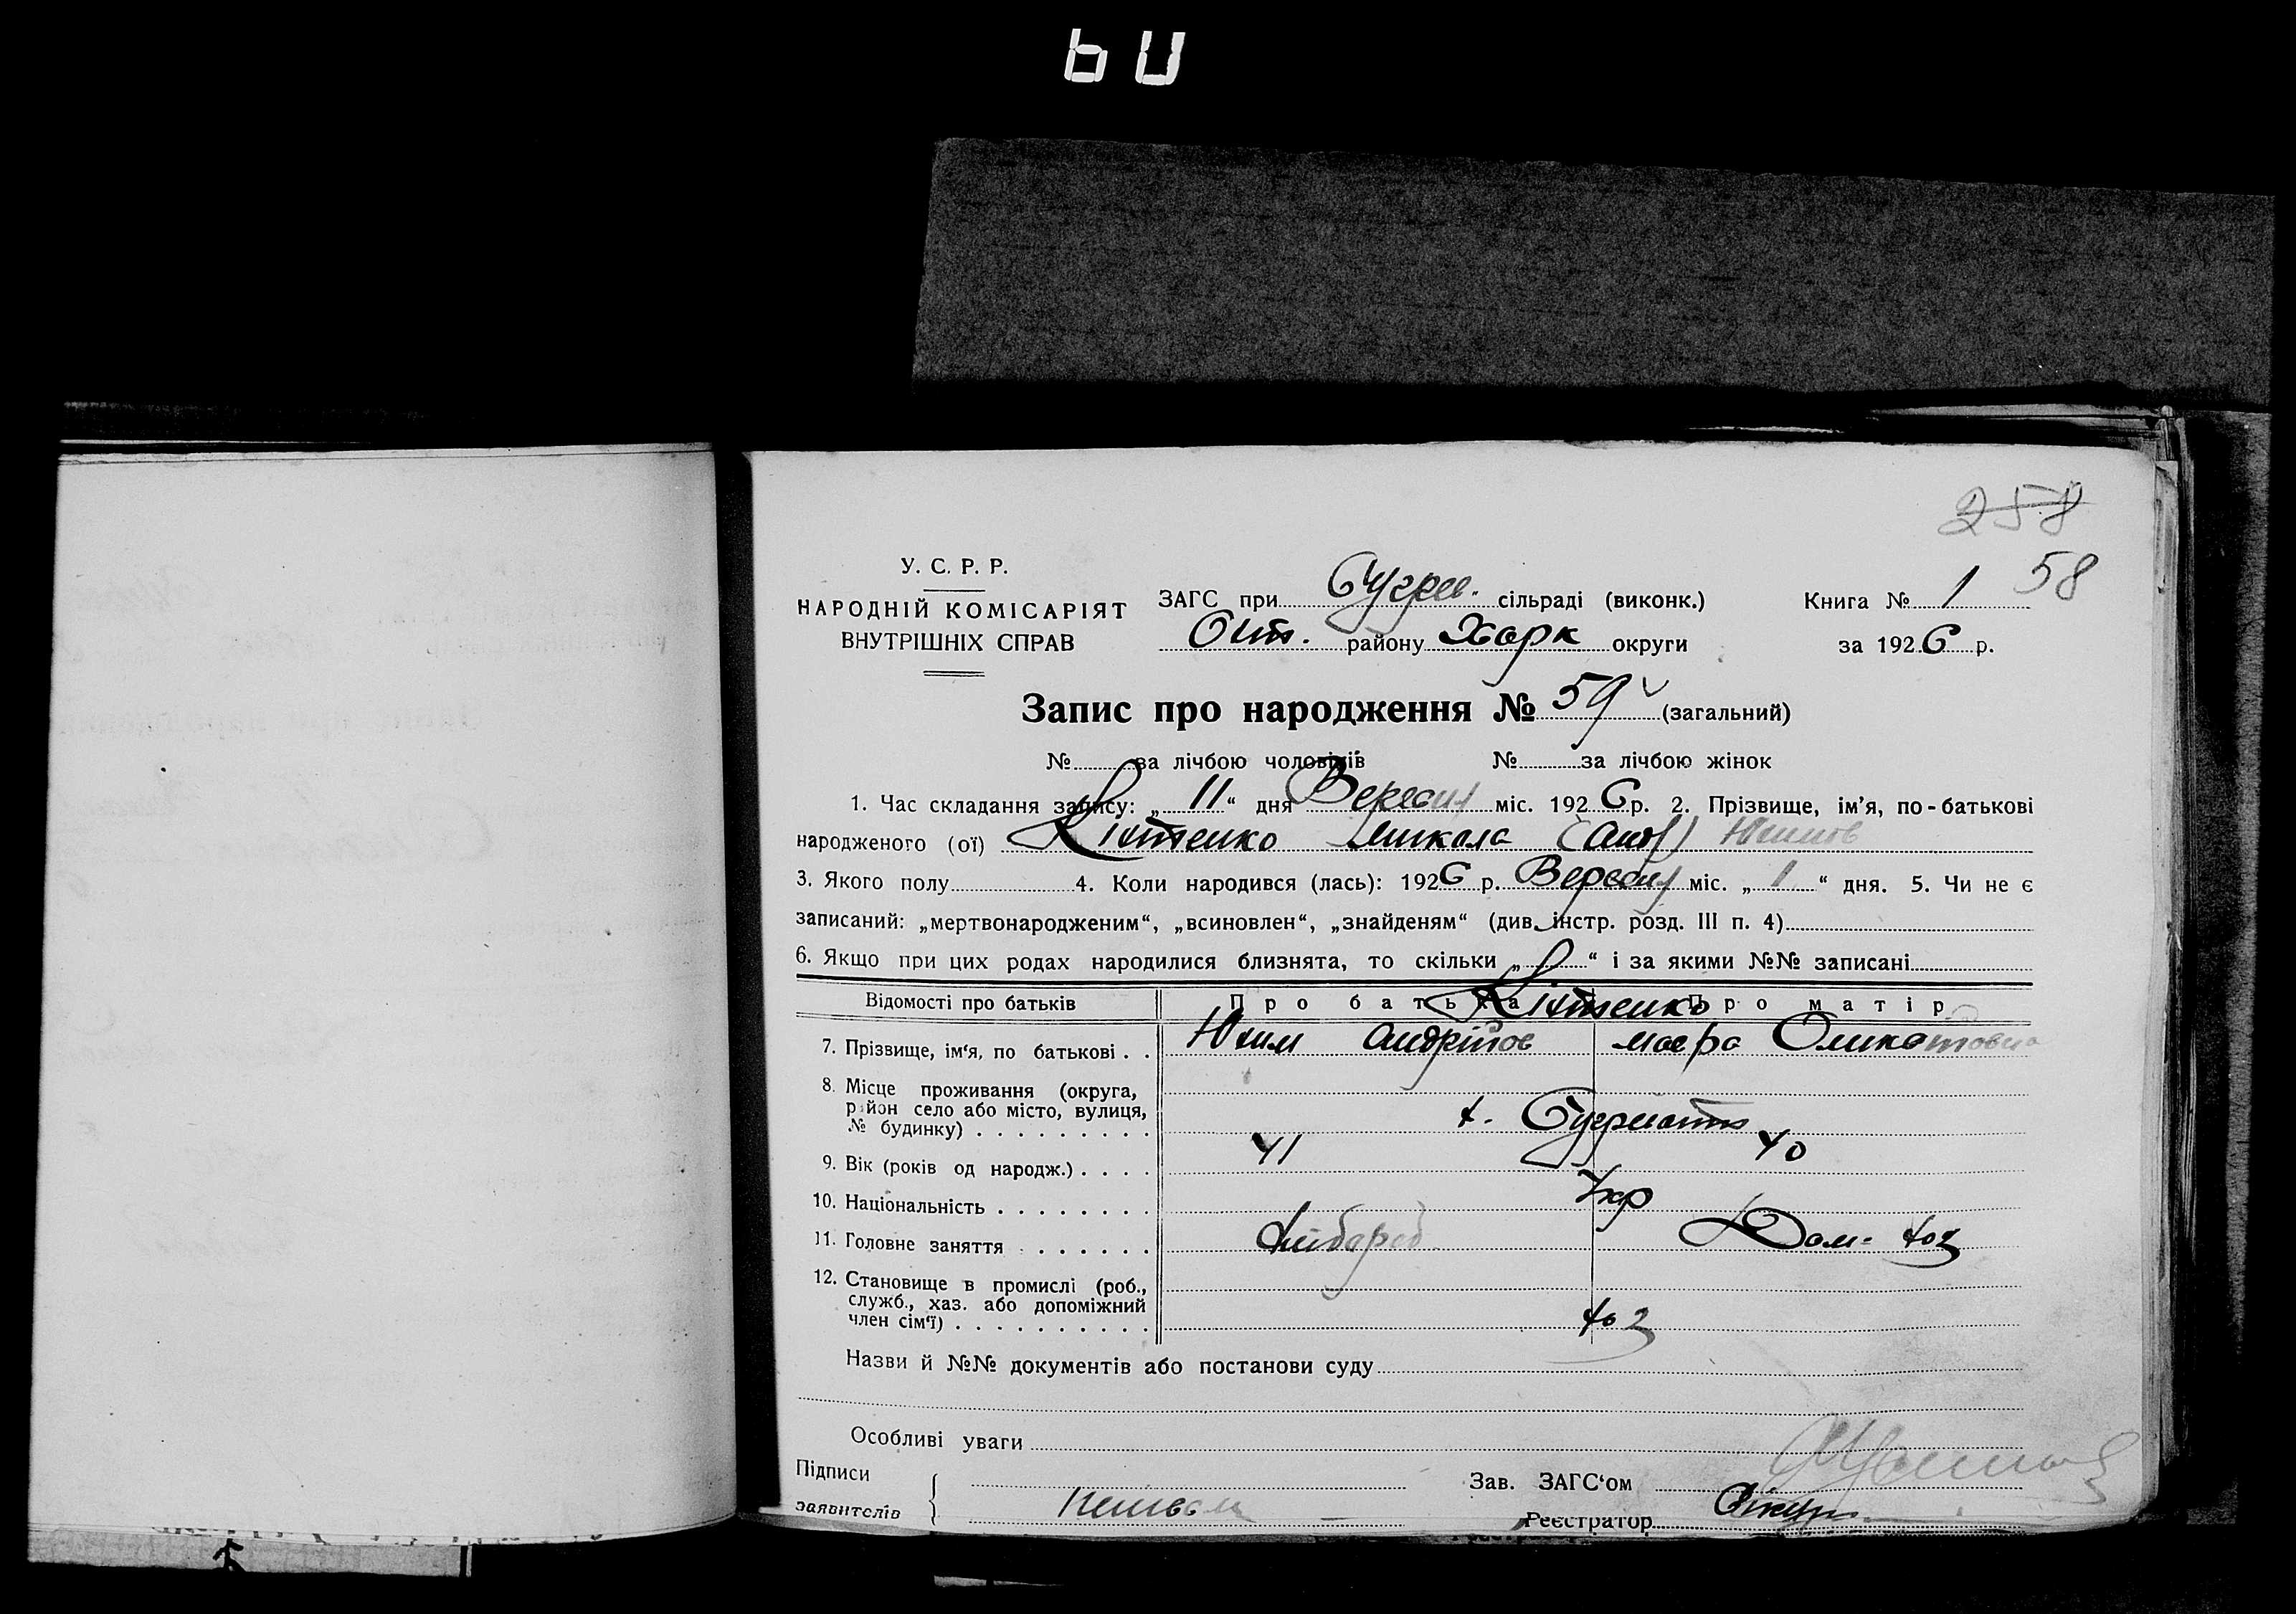 60
258
58
У. С. Р. Р.
НАРОДНІЙ КОМІСАРІЯТ
ВНУТРІШНІХ СПРАВ
ЗАГС при сільраді (виконк.)
району Харк округи
Книга № 1
за 1926 р.
Запис про народження № 59 (загальний)
№ за лічбою чоловіків № за лічбою жінок
1. Час складання запису: „ 11 “ дня Вересня міс. 1926 р. 2. Прізвище, ім’я, по-батькові
народженого (ої) Микола
3. Якого полу 4. Коли народився (лась): 1926 р. Вересня міс. „ 1 “ дня. 5. Чи не є
записаний: „мертвонародженим“, „всиновлен“, „знайденям“ (див. інстр. розд. III п. 4)
6. Якщо при цих родах народилися близнята, то скільки „ “ і за якими №№ записані
Відомості про батьків Про батька Про матір
7. Прізвище, ім‘я, по батькові . . Юхим
8. Місце проживання (округа,
район село або місто, вулиця,
№ будинку) . . . . . . . . .
9. Вік (років од народж.) . . . . 41 40
10. Національність . . . . . . . . Укр
11. Головне заняття . . . . . . . Хлібороб Дом. хоз
12. Становище в промислі (роб.,
служб., хаз. або допоміжний
член сім‘ї) . . . . . . . . . . хоз
Назви й №№ документів або постанови суду
Особливі уваги
Підписи
заявителів
Зав. ЗАГС‘ом
Реєстратор